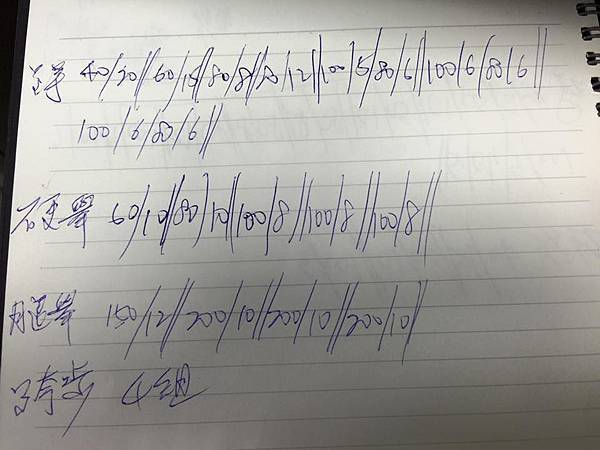 40/20//60/15//80/8//80/12//100/5/80/6//100/6/80/6//
100/6/80/6//
硬举 60/10//80/10//100/8//100/8//100/8//
腿举 150/12//200/10//200/10//200/10//
跨步 4组